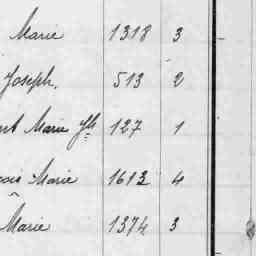 Marie 1318 3
Joseph. 513 2
Marie Jh 127 1
Marie 1613 4
Marie 1374 3